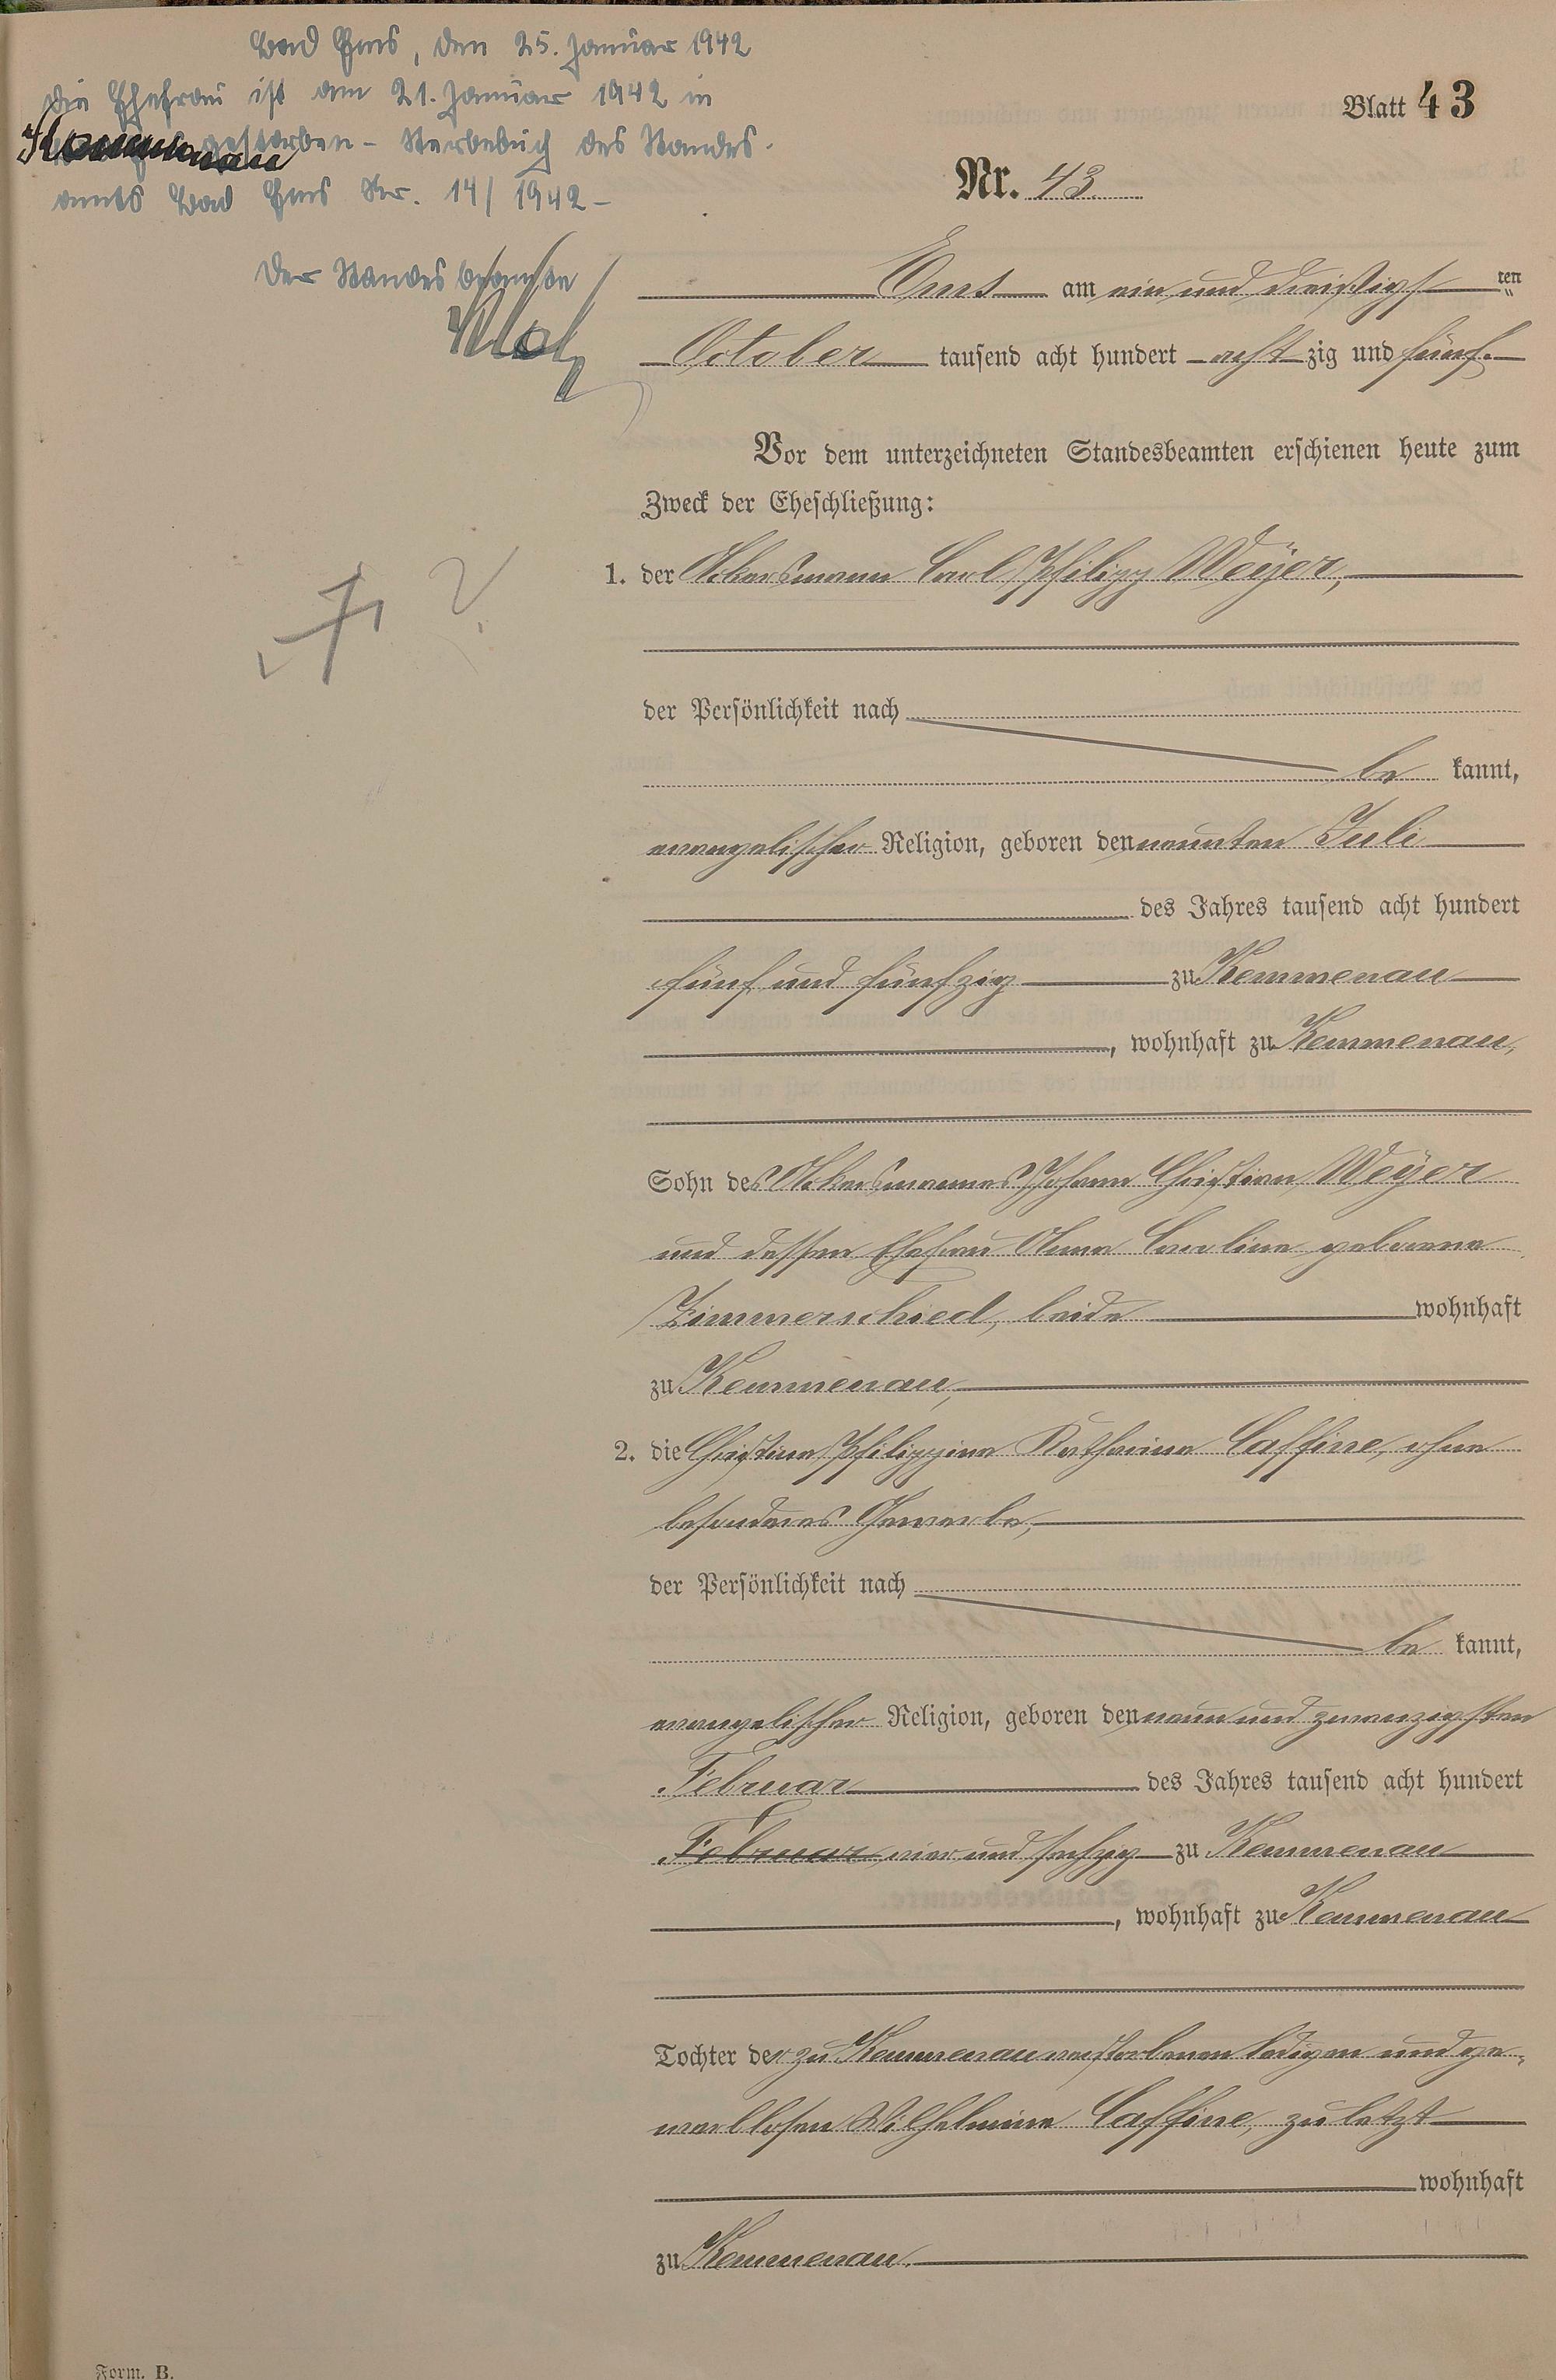 Bad Ems, den 25. Januar 1942
Die Ehefrau ist am 21. Januar 1942 in
Kemmenau gestorben - Sterbebuch des Standes-
amts Bad Ems Nr. 14/1942 -
Der Standesbeamte
Blatt 43
Nr. 43.
Ems am ein und dreißigsten
October tausend acht hundert achtzig und fünf.
Vor dem unterzeichneten Standesbeamten erschienen heute zum
Zweck der Eheschließung:
1. der Ackersmann Carl Philipp Weyer,
der Persönlichkeit nach
be kannt,
evangelischer Religion, geboren den neunten Juli
des Jahres tausend acht hundert
fünf und fünfzig zu Kemmenau
, wohnhaft zu Kemmenau,
Sohn des Ackersmannes Johann Christian Weyer
und dessen Ehefrau Anna Caroline geborene
Zimmerschied, beide wohnhaft
zu Kemmenau,
2. die Christine Philippine Katharine Caffine, ohne
besonderes Gewerbe,
der Persönlichkeit nach
be kannt,
evangelischer Religion, geboren den neun und zwanzigsten
Februar des Jahres tausend acht hundert
Februar vier und sechzig zu Kemmenau
, wohnhaft zu Kemmenau
Tochter der zu Kemmenau verstorbenen ledigen und ge-
werblosen Wilhelmine Caffine, zuletzt
wohnhaft
zu Kemmenau.
Form. B.